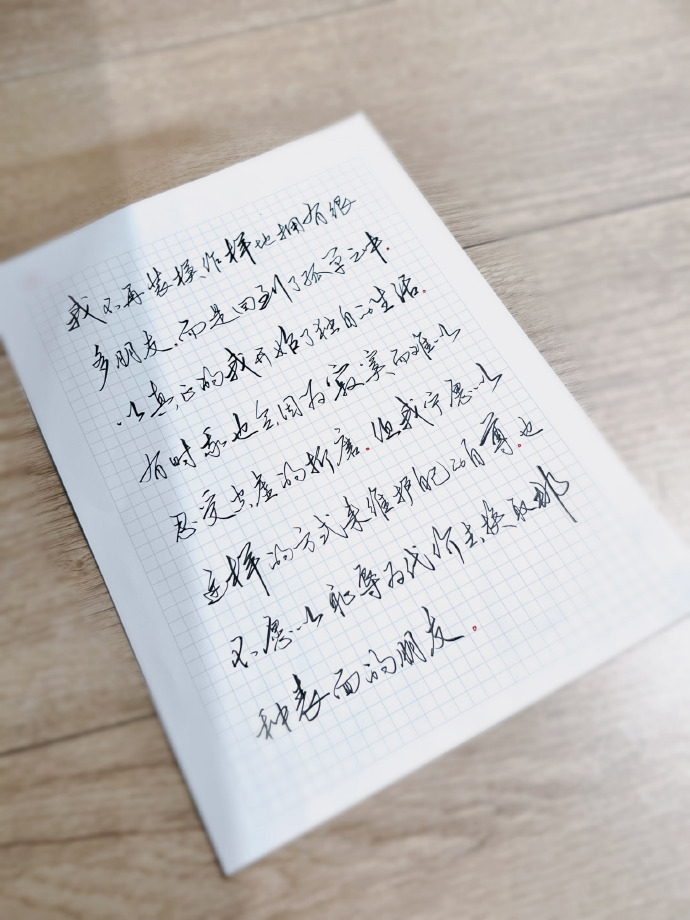 我不再装模作样地拥有很
多朋友.而是回到了孤单之中.
以真正的我开始了独自的生活.
有时我也会因为寂寞而难以
忍受空虚的折磨.但我宁愿以
这样的方式来维护自己的自尊.也
不愿以耻辱为代价去换取那
种表面的朋友.